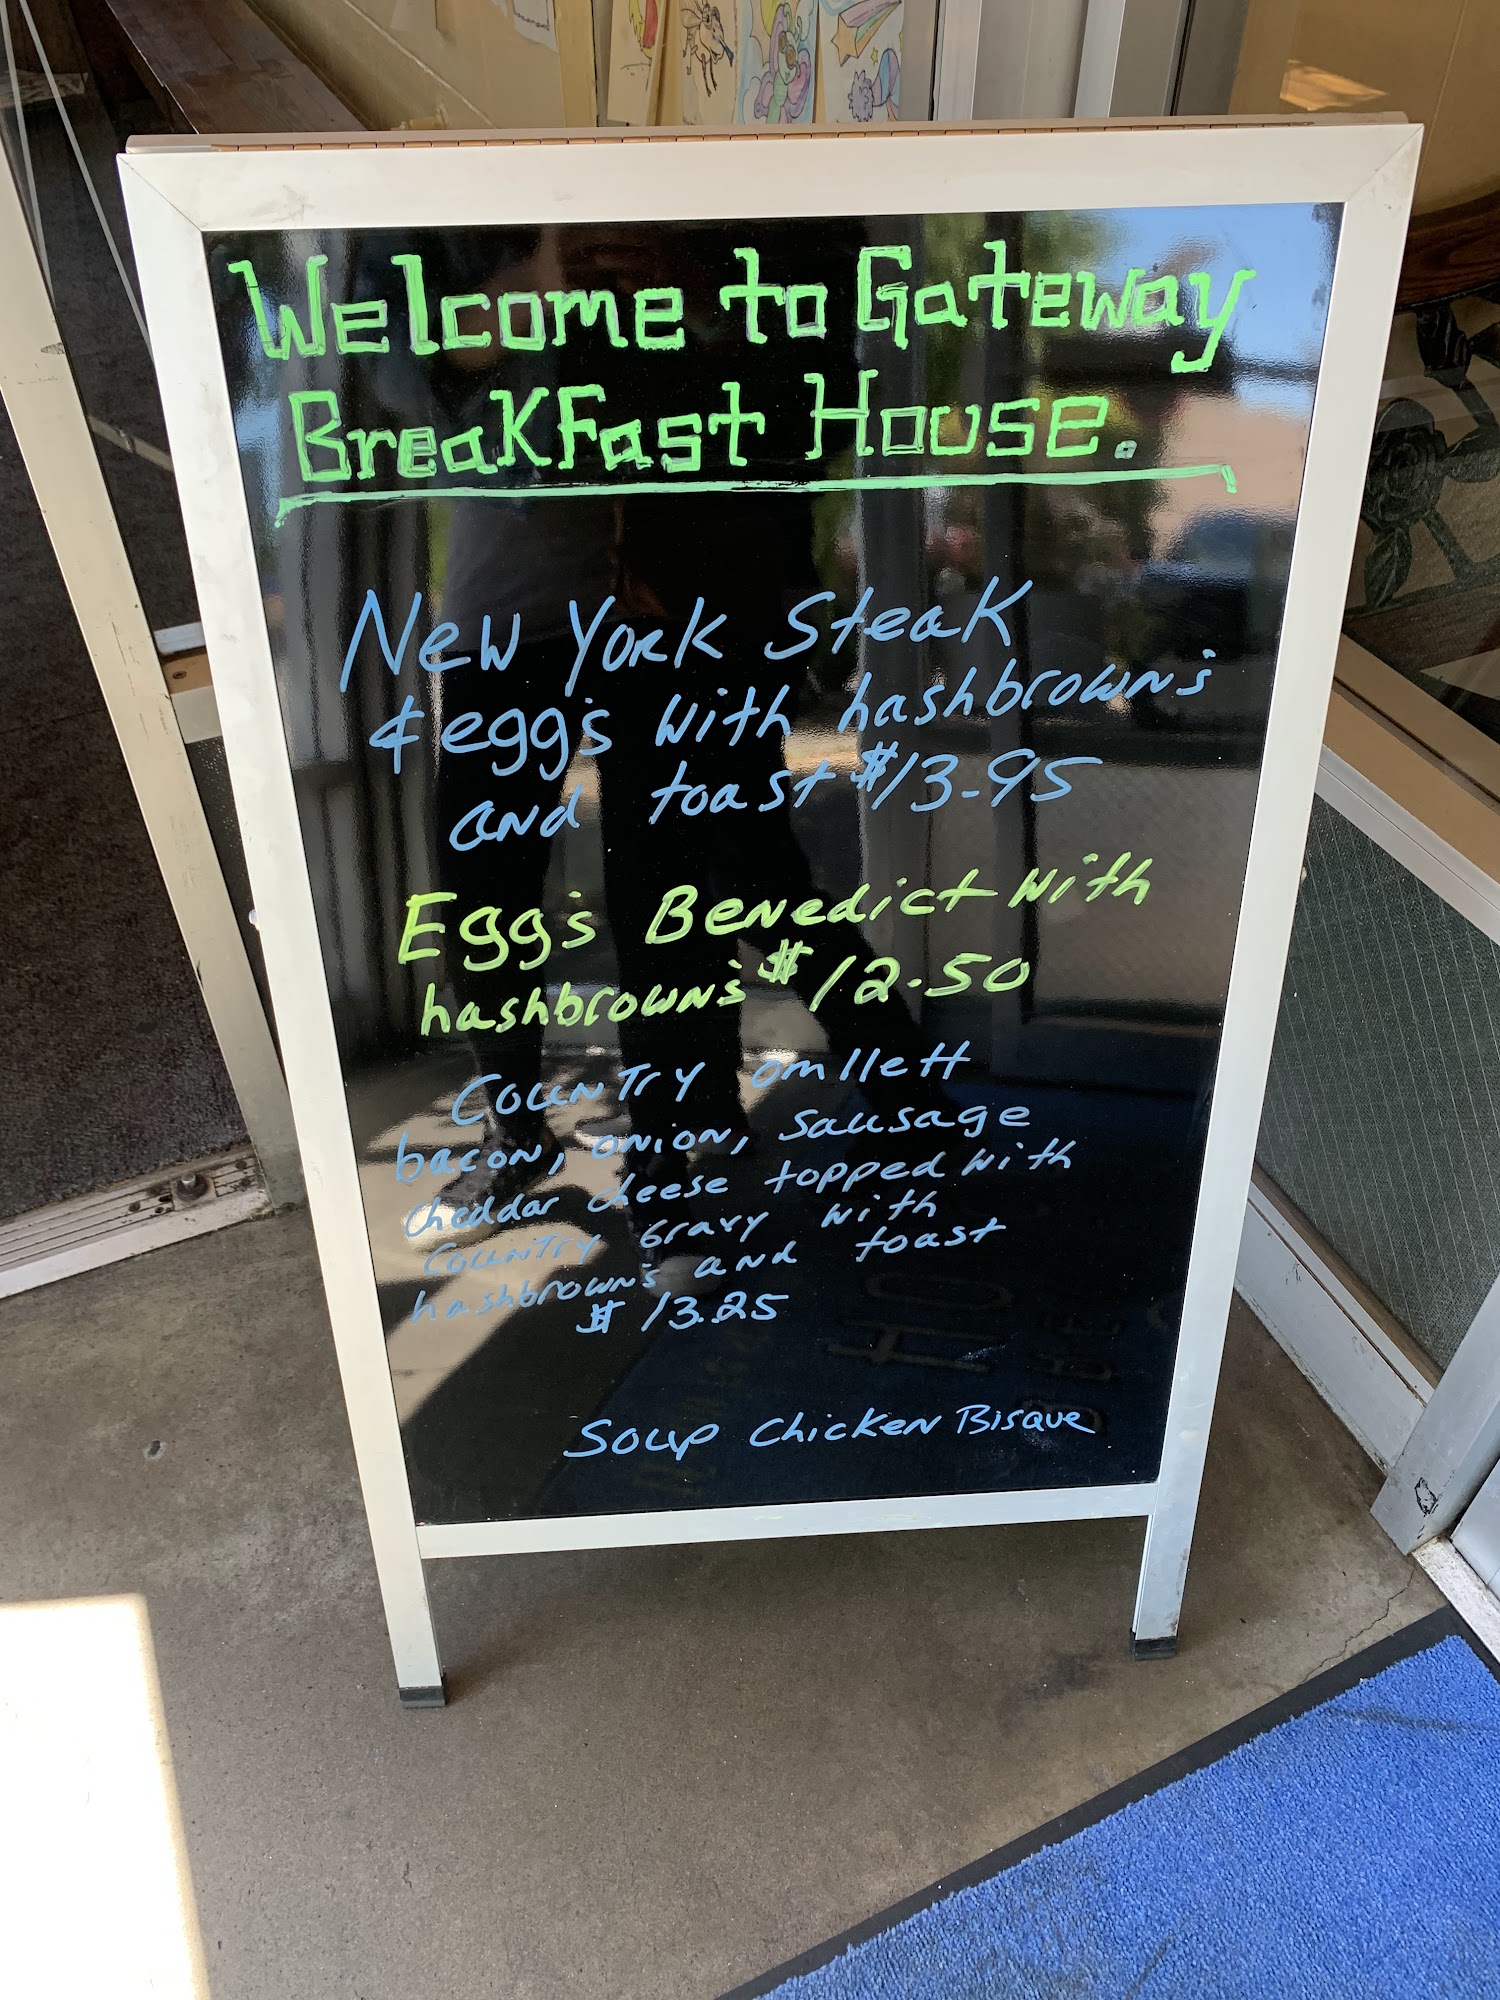 Welcome to Gateway
Breakfast House.
New York Steak
& egg's with hashbrown's
and toast $13.95
Egg's Benedict with
hashbrown's $12.50
Country omllett
bacon, onion, sausage
cheddar cheese topped with
Country Gravy with
hashbrown's and toast
$13.25
Soup Chicken Bisque